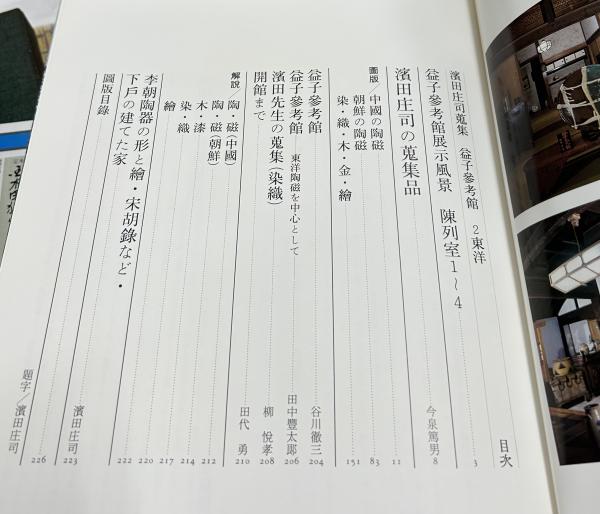 目次
濱田庄司蒐集 益子參考館 2 東洋 3
益子參考館展示風景 陳列室1〜4 今泉篤男 8
濱田庄司の蒐集品 11
圖版/中國の陶磁 83
朝鮮の陶磁 151
染・織・木・金・繪
益子參考館 谷川徹三 204
益子參考館 東洋陶磁を中心として 田中豐太郎 206
濱田先生の蒐集(染織) 柳悅孝 208
開館まで 田代勇 210
解說/陶・磁(中國) 212
陶・磁(朝鮮) 214
木・漆 217
染・織 220
繪 222
李朝陶器の形と繪・宋胡錄など・
下戶の建てた家 濱田庄司 223
圖版目錄 226
題字/濱田庄司